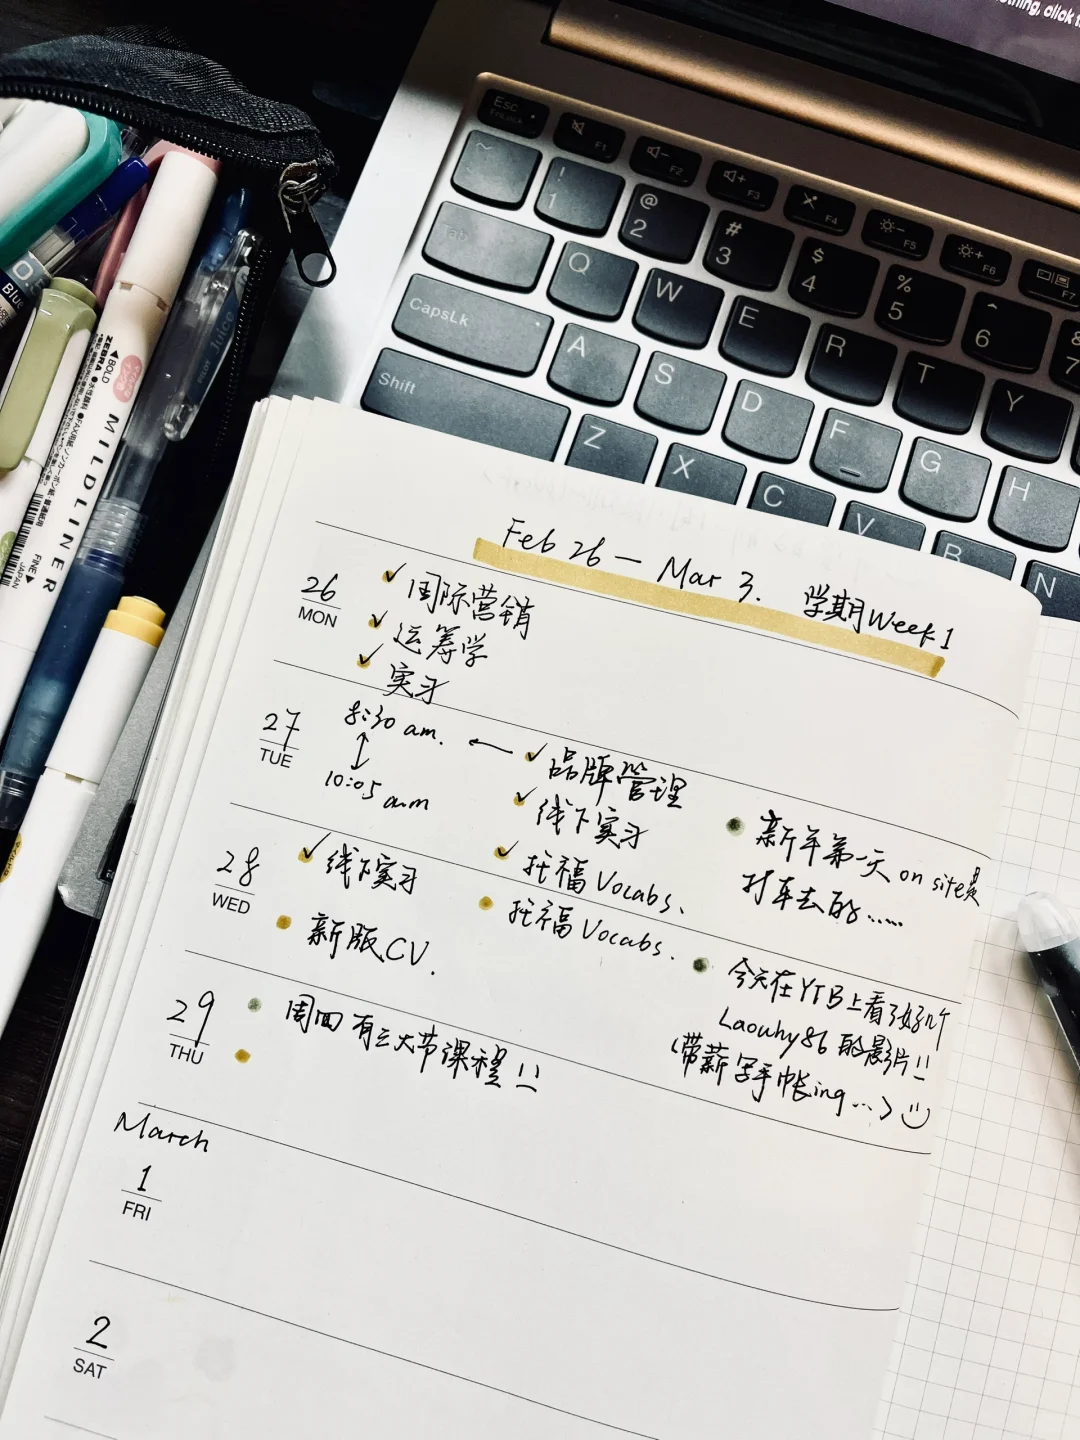 thing, click t
Esc
FnLock
F1
F2
F3
F4
F5
F6
F7
~
! 1
@ 2
# 3
$ 4
% 5
^ 6
& 7
Tab
Q W E R T Y
CapsLk
A S D F G H
Shift
Z X C V B N
Blue
ZEBRA
BOLD
MILDLINER
FINE
JAPAN
PILOT Juice
Feb 26 — Mar 3. 学期Week 1
26
MON
✓ 国际营销
✓ 运筹学
✓ 实习
27
TUE
8:30 am. ← ✓ 品牌管理
↕
10:05 am
✓ 线下实习
✓ 托福 Vocabs.
新年第一天 on site
打车去的......
28
WED
✓ 线下实习
新版CV.
托福 Vocabs.
今天在YTB上看了好几个
Laowhy86 的影片!!
(带薪写手帐ing...)
29
THU
周四有三大节课程!!
March
1
FRI
2
SAT